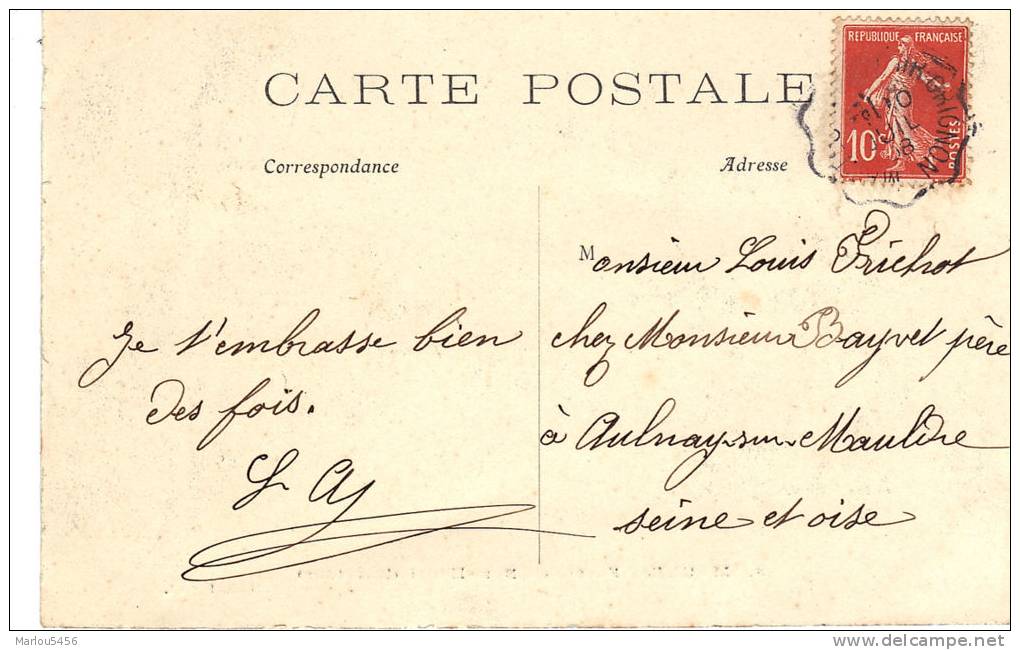 CARTE POSTALE
REPUBLIQUE FRANÇAISE
10c
POSTES
GRIGNON
10
JUIL
Correspondance
Adresse
Monsieur Louis Trichot
chez Monsieur Bayvet père
à Aulnay-sur-Mauldre
seine et oise
Je t'embrasse bien
des fois.
Marlou5456
www.delcampe.net